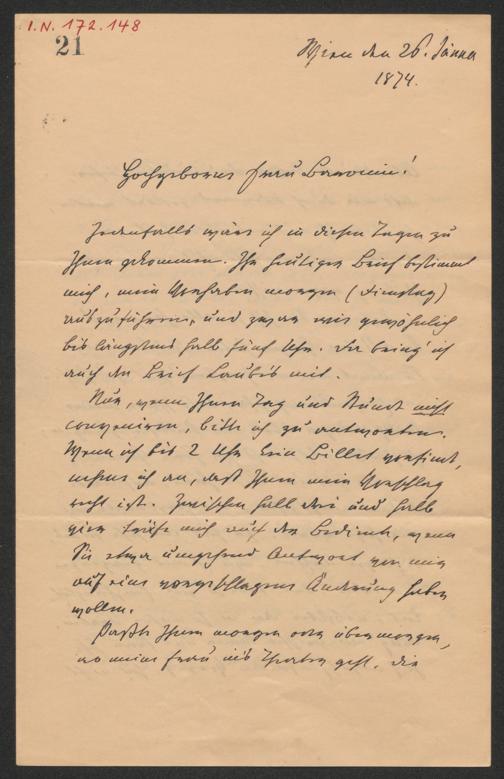 I.N. 172.148
21
Wien den 26. Jänner
1874.
Hochgeborne Frau Baronin!
Jedenfalls wäre ich in diesen Tagen zu
Ihnen gekommen. Ihr heutiger Brief bestimmt
mich, mein Vorhaben morgen (Dienstag)
auszuführen, und zwar wie gewöhnlich
bis längstens halb fünf Uhr. Da bring' ich
auch den Brief Laube's mit.
Nur, wenn Ihnen Tag und Stunde nicht
conveniren, bitte ich zu antworten.
Wenn ich bis 2 Uhr kein Billet vorfinde,
nehme ich an, daß Ihnen mein Vorschlag
recht ist. Zwischen halb drei und halb
vier träfe mich auch der Bediente, wenn
Sie etwa umgehend Antwort von mir
auf eine vorgeschlagene Änderung haben
wollen.
Paßte Ihnen morgen oder übermorgen,
wo meine Frau in's Theater geht, die